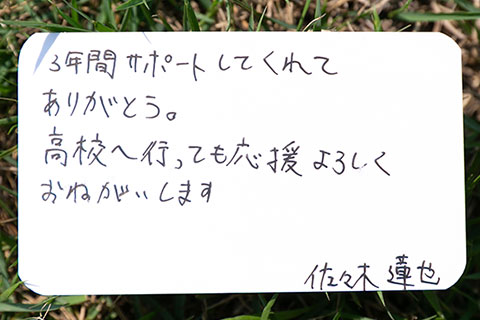 3年間サポートしてくれて
ありがとう。
高校へ行っても応援よろしく
おねがいします
佐々木蓮也